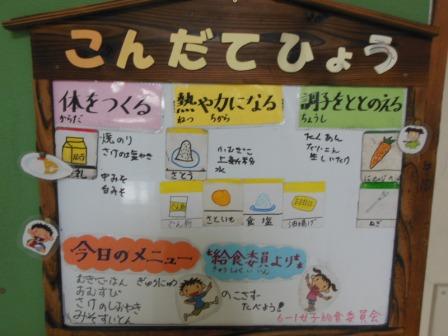 こんだてひょう
体をつくる
からだ
熱や力になる
ねつ ちから
調子をととのえる
ちょうし
焼のり
さけの塩やき
中みそ
白みそ
さとう
小むぎこ
上新粉
水
たくあん
だいこん
生しいたけ
でん粉
さといも
食塩
油揚げ
ねぎ
今日のメニュー
むぎごはん ぎゅうにゅう
おむすび
さけのしおやき
みそすいとん
給食委員より
きゅうしょくいいん
のこさず
たべよう!
6-1女子給食委員会